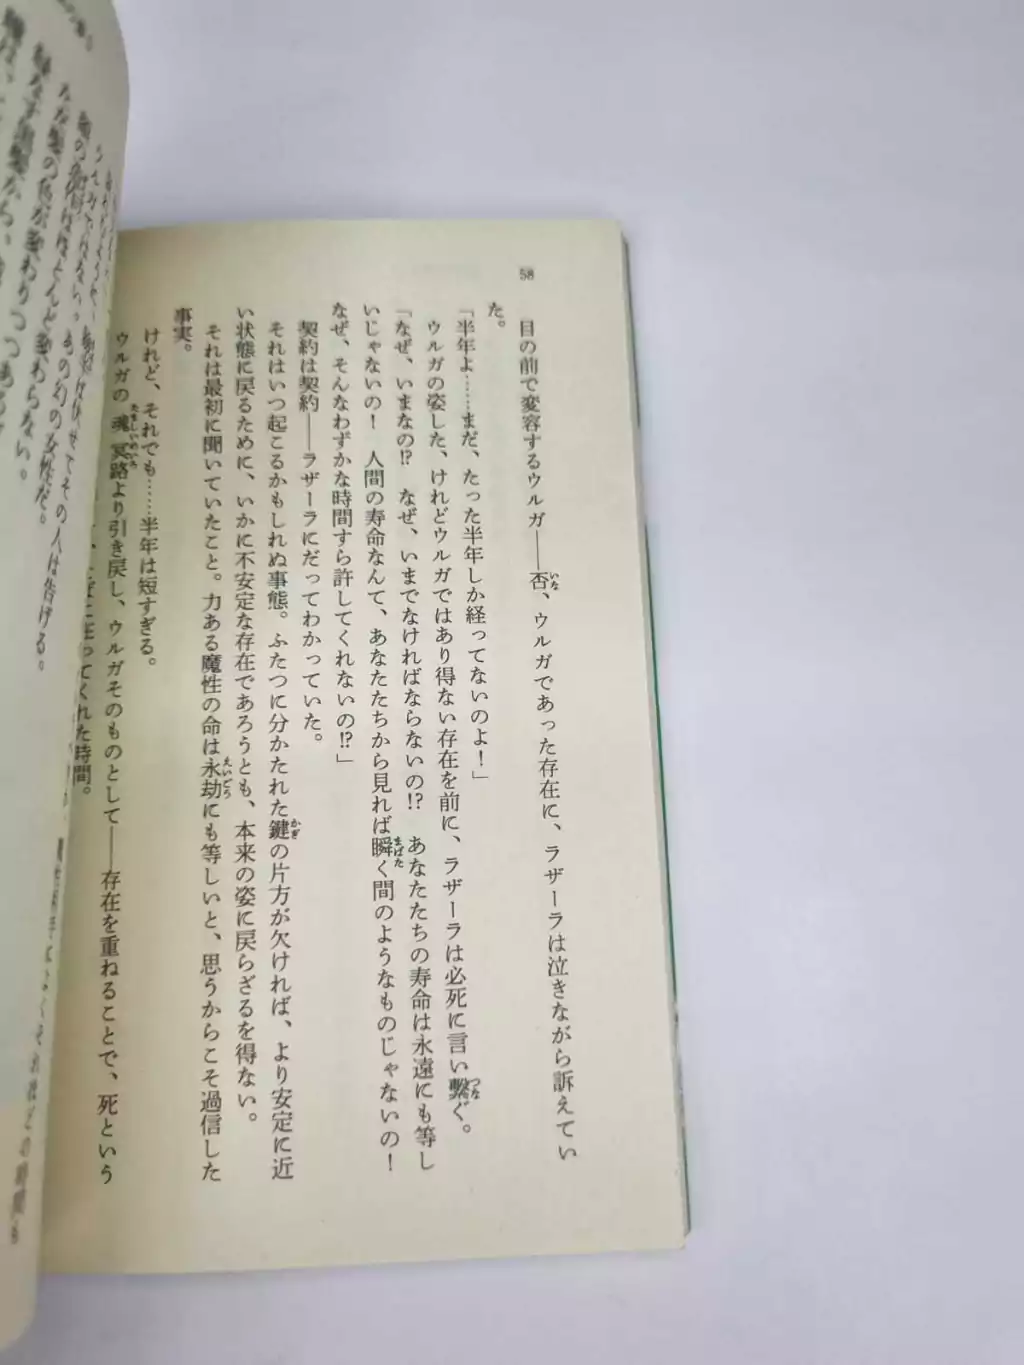 58
目の前で変容するウルガ――否、ウルガであった存在に、ラザーラは泣きながら訴えてい
た。
「半年よ……まだ、たった半年しか経ってないのよ！」
ウルガの姿した、けれどウルガではあり得ない存在を前に、ラザーラは必死に言い繋ぐ。
「なぜ、いまなの!?　なぜ、いまでなければならないの!?　あなたたちの寿命は永遠にも等し
いじゃないの！　人間の寿命なんて、あなたたちから見れば瞬く間のようなものじゃないの！
なぜ、そんなわずかな時間すら許してくれないの!?」
契約は契約――ラザーラにだってわかっていた。
それはいつ起こるかもしれぬ事態。ふたつに分かたれた鍵の片方が欠ければ、より安定に近
い状態に戻るために、いかに不安定な存在であろうとも、本来の姿に戻らざるを得ない。
それは最初に聞いていたこと。力ある魔性の命は永劫にも等しいと、思うからこそ過信した
事実。
けれど、それでも……半年は短すぎる。
ウルガの魂冥路より引き戻し、ウルガそのものとして――存在を重ねることで、死という
に在ってくれた時間。
その人は告げる。
の幻の女性だ。
ほとんど変わらない。
が変わりつつある